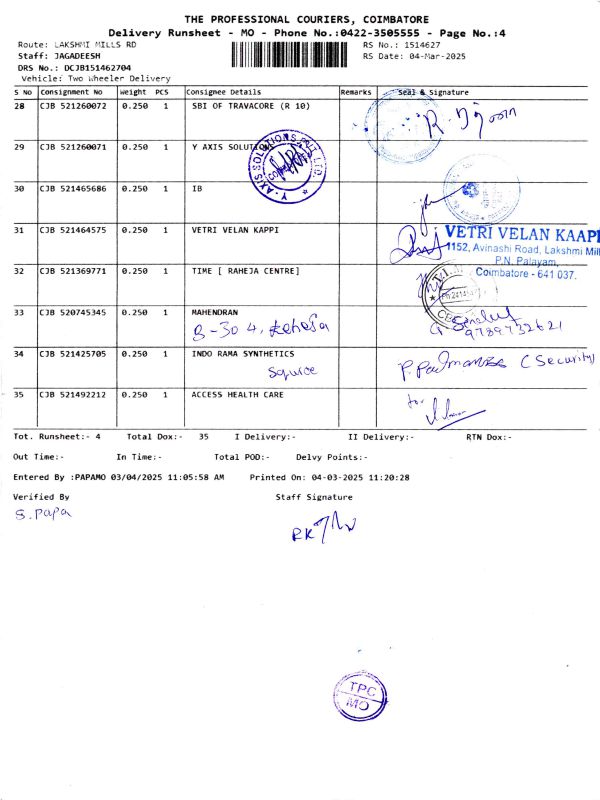 THE PROFESSIONAL COURIERS, COIMBATORE
Delivery Runsheet - MO - Phone No.:0422-3505555 - Page No.:4
Route: LAKSHMI MILLS RD RS No.: 1514627
Staff: JAGADEESH RS Date: 04-Mar-2025
DRS No.: DCJB151462704
Vehicle: Two Wheeler Delivery
S NO Consignment No Weight PCS Consignee Details Remarks Seal & Signature
28 CJB 521260072 0.250 1 SBI OF TRAVACORE (R 10)
29 CJB 521260071 0.250 1 Y AXIS SOLUTION
Y-AXIS SOLUTIONS PVT. LTD.
30 CJB 521465686 0.250 1 IB
31 CJB 521464575 0.250 1 VETRI VELAN KAPPI
VETRI VELAN KAAPI
1152, Avinashi Road, Lakshmi Mill
P.N. Palayam,
Coimbatore - 641 037.
32 CJB 521369771 0.250 1 TIME [ RAHEJA CENTRE]
33 CJB 520745345 0.250 1 MAHENDRAN
B-304, Raheja
9789732621
34 CJB 521425705 0.250 1 INDO RAMA SYNTHETICS
Square
(Security)
35 CJB 521492212 0.250 1 ACCESS HEALTH CARE
for
Tot. Runsheet:- 4 Total Dox:- 35 I Delivery:- II Delivery:- RTN Dox:-
Out Time:- In Time:- Total POD:- Delvy Points:-
Entered By :PAPAMO 03/04/2025 11:05:58 AM Printed On: 04-03-2025 11:20:28
Verified By Staff Signature
S. Papa
TPC
MO